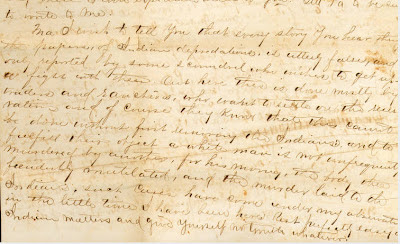 to write to me.
Ma, I wish to tell You that every story You hear thro
the papers of Indian depredations is utterly false, and
only reported by some scoundrel who wishes to get up
a fight with them. Out here this is done mostly by
traders and Ranchers, who want to settle on the Reser
vation, and of course they know that this cannot
be done without first removing the Indians, and to
perfect their object a white man is not unfrequently
murdered by another, for his money, the body then
mutilated, and the murder laid to the
Indians, such cases have come under my observation
in the little time I have been here. Rest perfectly easy on
Indian matters and give yourself no trouble whatever.